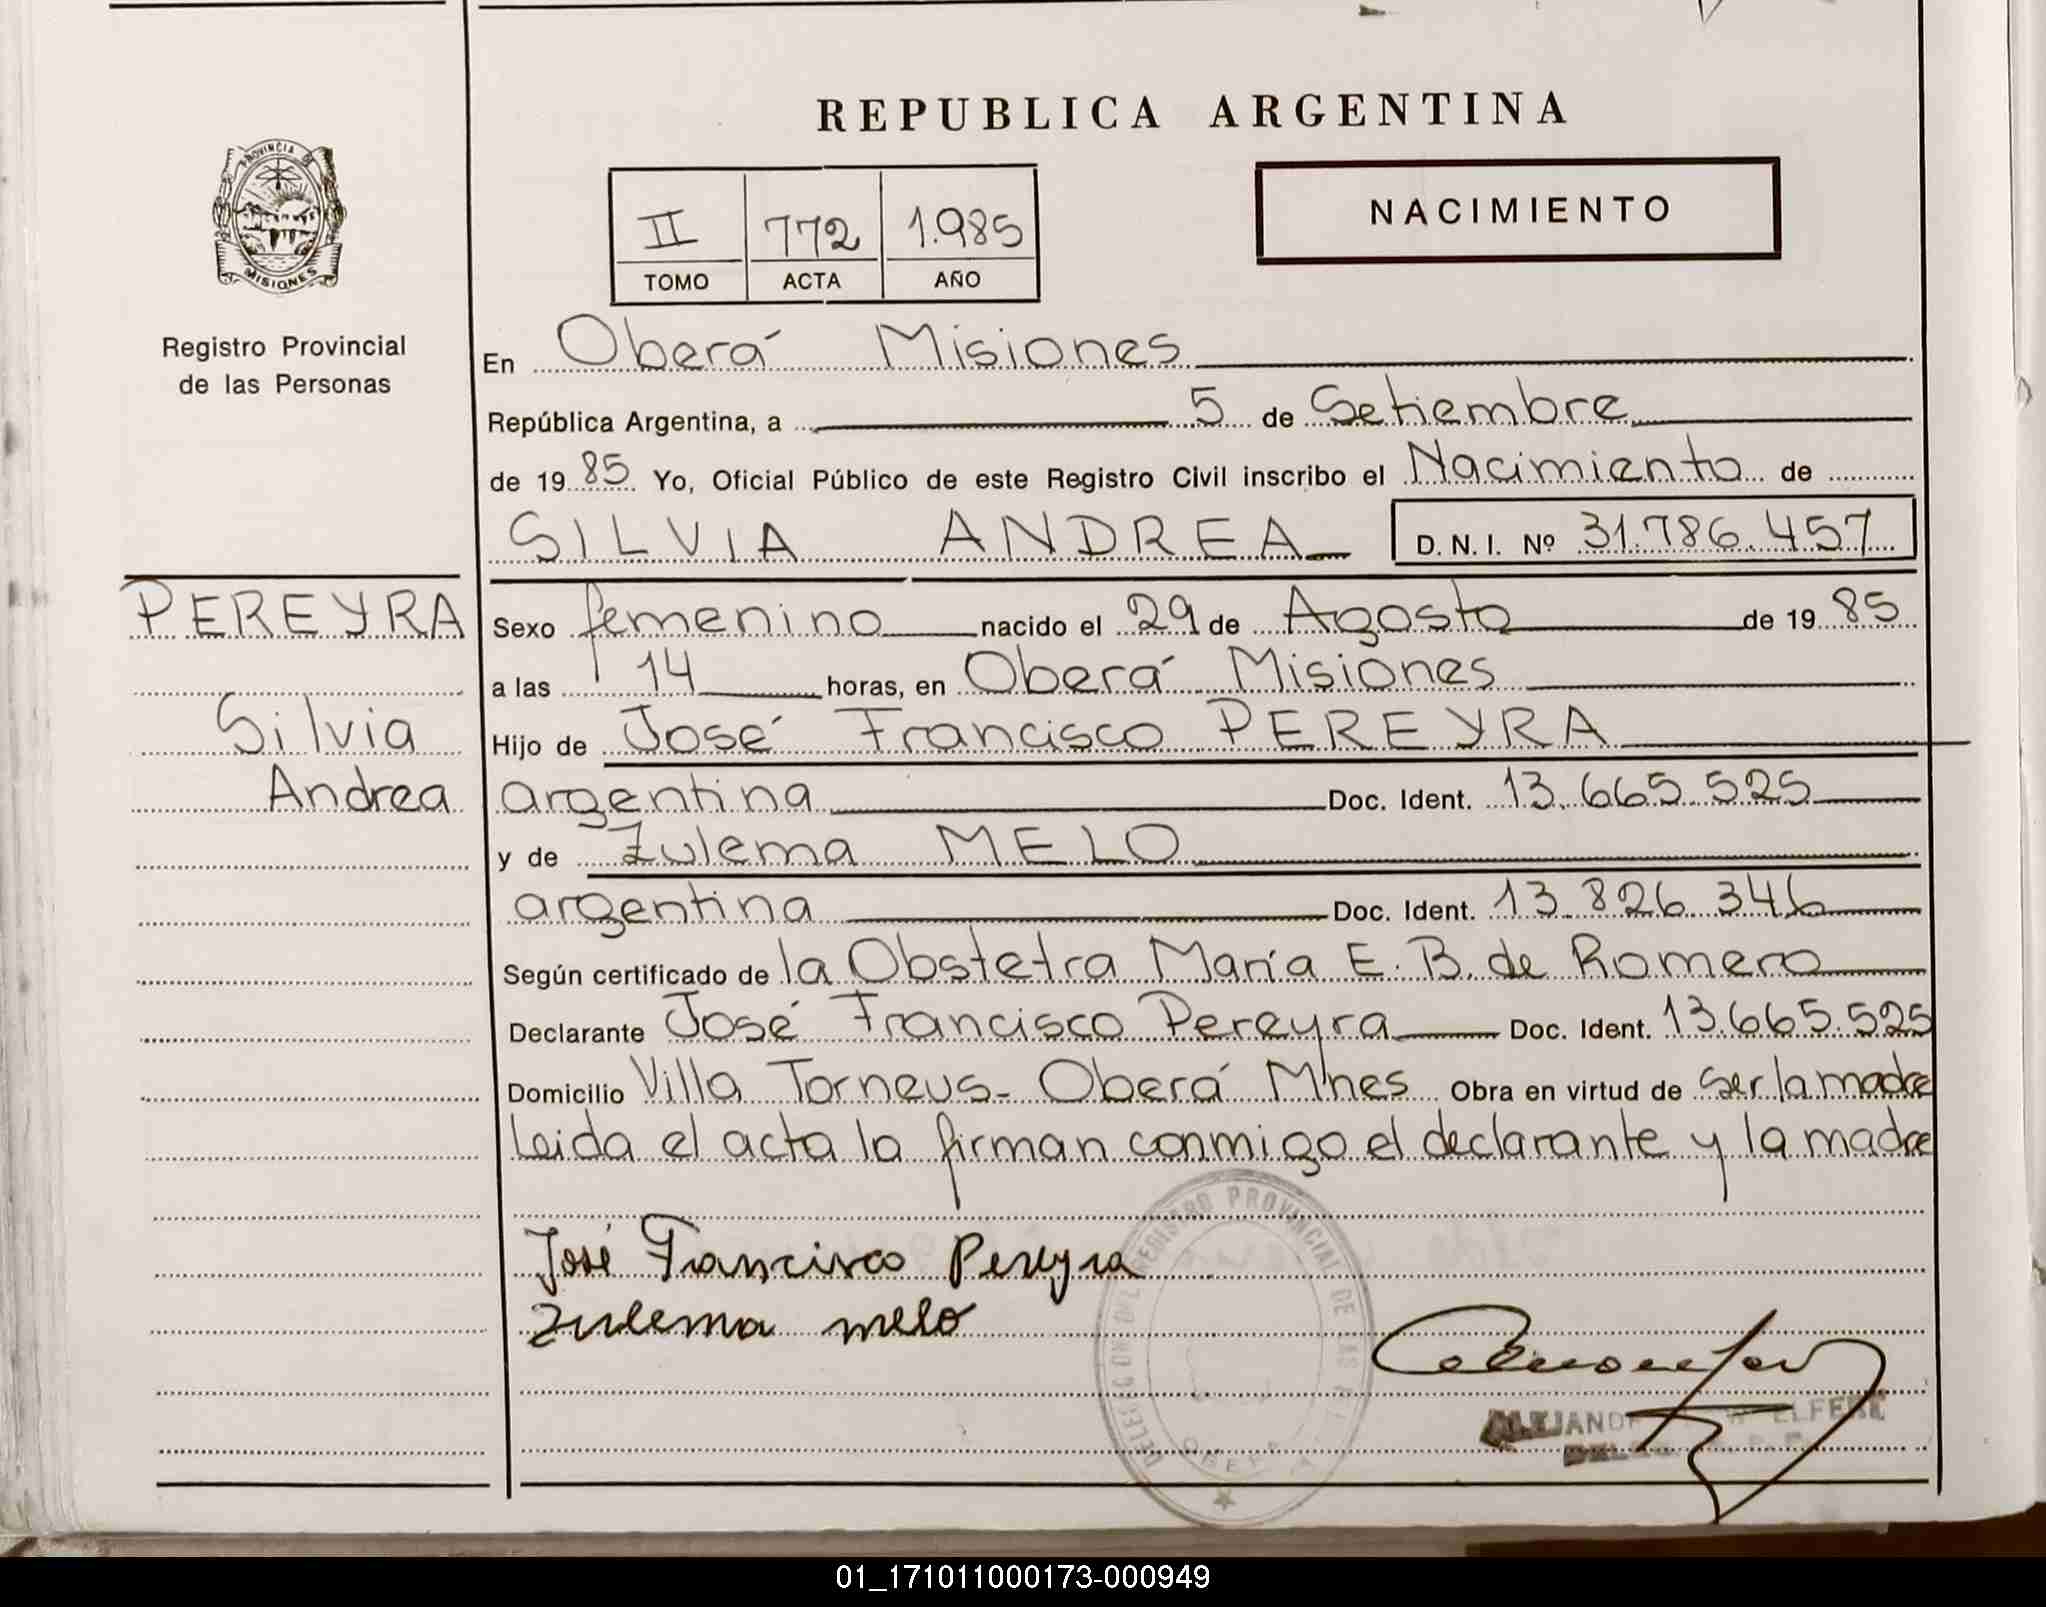 REPUBLICA ARGENTINA
PROVINCIA DE
MISIONES
Registro Provincial
de las Personas
II 772 1.985
TOMO ACTA AÑO
NACIMIENTO
En Oberá Misiones
República Argentina, a 5 de Setiembre
de 1985 Yo, Oficial Público de este Registro Civil inscribo el Nacimiento de
SILVIA ANDREA D. N. I. Nº 31.786.457
PEREYRA
Silvia
Andrea
Sexo femenino nacido el 29 de Agosto de 1985
a las 14 horas, en Oberá Misiones
Hijo de José Francisco PEREYRA
argentina Doc. Ident. 13.665.525
y de Zulema MELO
argentina Doc. Ident. 13.826.346
Según certificado de la Obstetra María E. B. de Romero
Declarante José Francisco Pereyra Doc. Ident. 13.665.525
Domicilio Villa Torneus - Oberá M'nes Obra en virtud de ser la madre
Leida el acta la firman conmigo el declarante y la madre
José Francisco Pereyra
Zulema melo
REGISTRO PROVINCIAL DE LAS
01_171011000173-000949